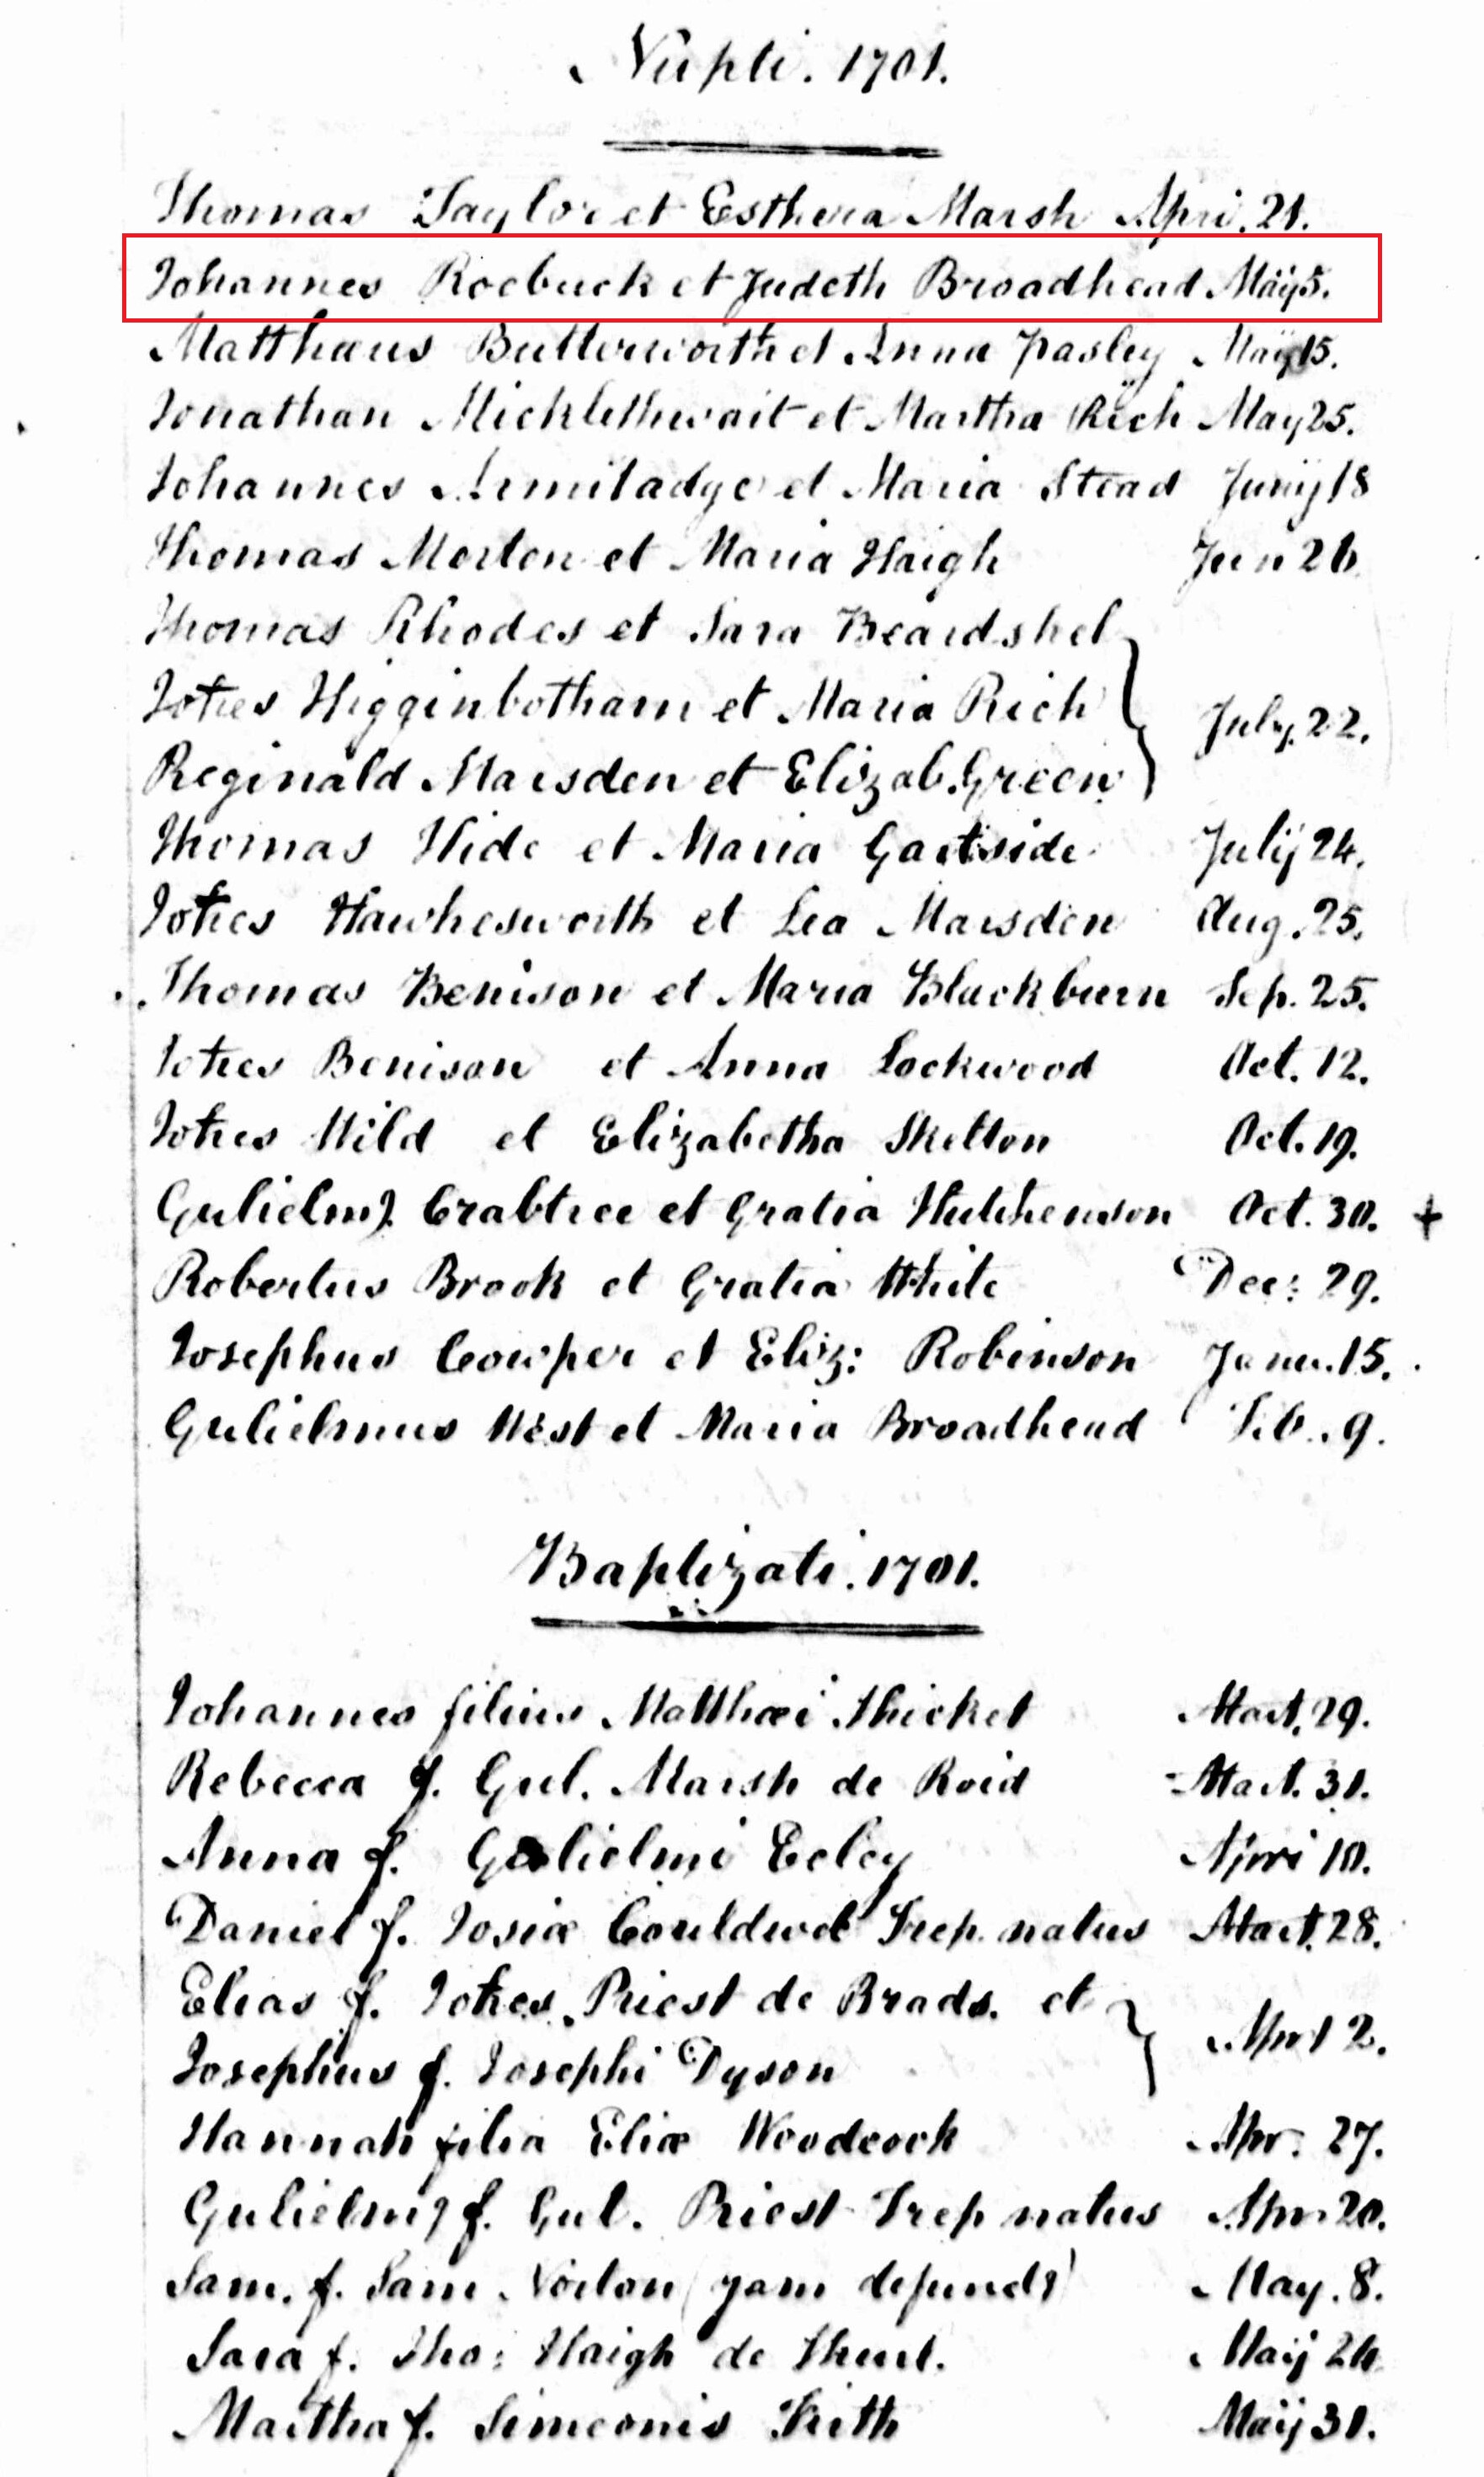 Nupti. 1701.
Thomas Taylor et Esthera Marsh Apri. 21.
Johannes Roebuck et Judeth Broadhead Maij 5.
Matthæus Butterworth et Anna Pasley Maij 15.
Jonathan Micklethwait et Martha Rich May 25.
Johannes Armitadge et Maria Stead Junij 18
Thomas Morton et Maria Haigh Jun 26
Thomas Rhodes et Sara Beardshel
Johes Higginbotham et Maria Rich July. 22.
Reginald Marsden et Elizab. Green
Thomas Hide et Maria Gartside Julij 24.
Johes Hawkesworth et Lea Marsden Aug. 25.
Thomas Benison et Maria Blackburn Sep. 25.
Johes Benison et Anna Lockwood Oct. 12.
Johes Wild et Elizabetha Skelton Oct. 19.
Gulielm9. Crabtree et Gratia Hutchenson Oct. 30. +
Robertus Brook et Gratia White Dec: 29.
Josephus Cowper et Eliz: Robinson Janu. 15.
Gulielmus West et Maria Broadhead Feb. 9.
Baptizati. 1701.
Johannes filius Matthæi Thicket Mart. 29.
Rebecca f. Gul. Marsh de Roid Mart. 31.
Anna f. Gulielmi Ecley Apri 10.
Daniel f. Josiæ Couldwel Trep. natus Mart. 28.
Elias f. Johes. Priest de Brads. et
Josephus f. Josephi Dyson Aprl 2.
Hannah filia Eliæ Woodcock Apr. 27.
Gulielm9 f. Gul. Priest Trep natus Apr. 20.
Sam. f. Sam. Norton (jam defunct9) May. 8.
Sara f. Tho: Haigh de Thurl. Maij 24
Martha f. Simeonis Frith Maij 31.